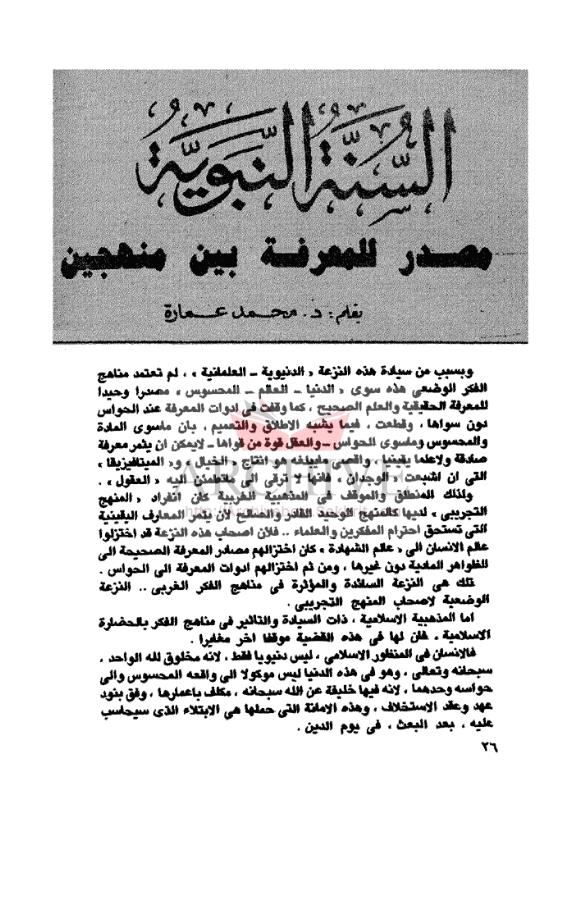 السُّنَّةُ النَّبَوِيَّةُ
مصدر للمعرفة بين منهجين
بقلم : د. محمد عمارة
وبسبب من سيادة هذه النزعة « الدنيوية ــ العلمانية » ، لم تعتمد مناهج
الفكر الوضعى هذه سوى « الدنيا ــ العالم ــ المحسوس » مصدرا وحيدا
للمعرفة الحقيقية والعلم الصحيح ، كما وقفت فى ادوات المعرفة عند الحواس
دون سواها ، وقطعت ، فيما يشبه الاطلاق والتعميم ، بان ماسوى المادة
والمحسوس وماسوى الحواس ــ والعقل قوة من قواها ــ لايمكن ان يثمر معرفة
صادقة ولاعلما يقينيا ، واقصى مايبلغه هو انتاج « الخيال » ، و« الميتافيزيقا »
التى ان اشبعت « الوجدان » فانها لا ترقى الى ماتطمئن اليه « العقول » .
ولذلك المنطلق والموقف فى المذهبية الغربية كان انفراد « المنهج
التجريبى » لديها كالمنهج الوحيد القادر والصالح لان يثمر المعارف اليقينية
التى تستحق احترام المفكرين والعلماء .. فلان اصحاب هذه النزعة قد اختزلوا
عالم الانسان الى « عالم الشهادة » كان اختزالهم مصادر المعرفة الصحيحة الى
الظواهر المادية دون غيرها ، ومن ثم اختزالهم ادوات المعرفة الى الحواس .
تلك هى النزعة السائدة والمؤثرة فى مناهج الفكر الغربى .. النزعة
الوضعية لاصحاب المنهج التجريبى .
اما المذهبية الاسلامية ، ذات السيادة والتاثير فى مناهج الفكر بالحضارة
الاسلامية ، فان لها فى هذه القضية موقفا اخر مغايرا .
فالانسان فى المنظور الاسلامى ، ليس دنيويا فقط ، لانه مخلوق لله الواحد ،
سبحانه وتعالى ، وهو فى هذه الدنيا ليس موكولا الى واقعه المحسوس والى
حواسه وحدهما ، لانه فيها خليفة عن الله سبحانه ، مكلف باعمارها ، وفق بنود
عهد وعقد الاستخلاف ، وهذه الامانة التى حملها هى الابتلاء الذى سيحاسب
عليه ، بعد البعث ، فى يوم الدين .
٣٦
ARCHIVE